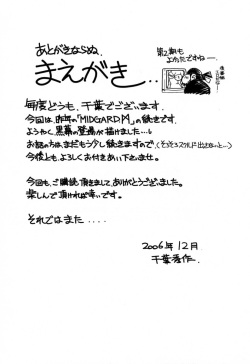 あとがきならぬ、
まえがき・・
第2期も
よかったですねー
毎度どうも、千葉でございます。
今回は、昨年の「MIDGARD」の続きです。
ようやく、黒幕の登場が描けました…。
お話の方は、まだもう少し続きますので、
今後とも、よろしくお付きあい下さいませ。
今回も、ご購読頂きまして、ありがとうございました。
楽しんで頂ければ幸いです。
それではまた・・・・
2006年12月
千葉秀作.